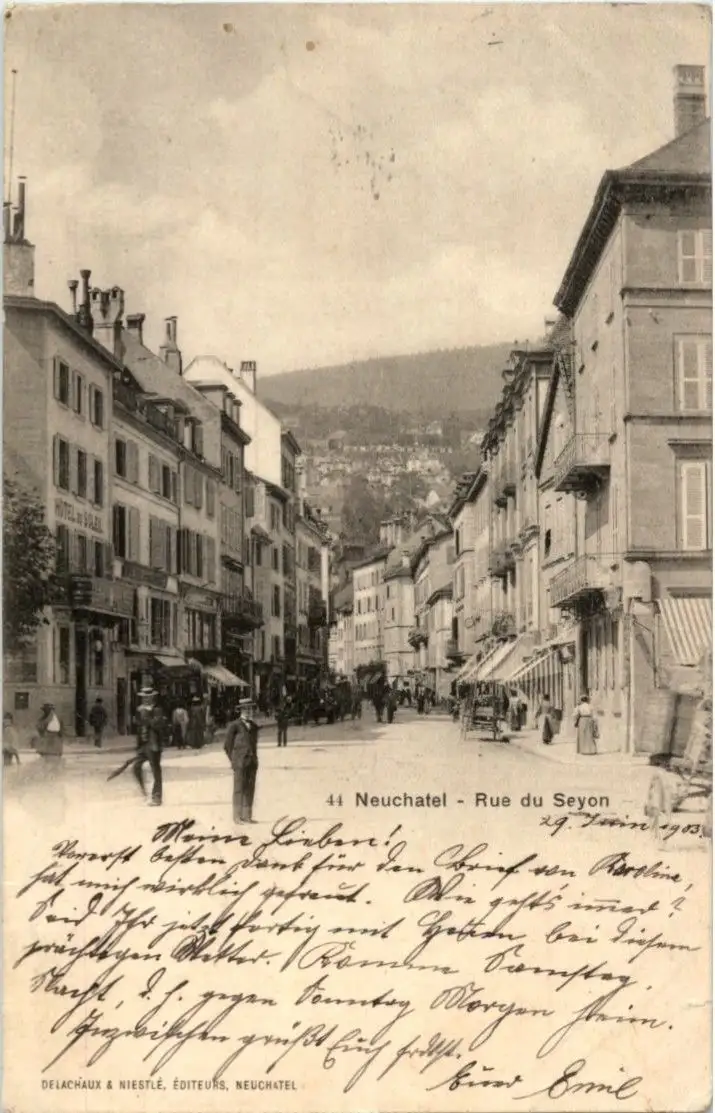 HÔTEL DU SOLEIL
44 Neuchatel - Rue du Seyon
29. Juin 1903.
Meine Lieben!
Vorerst besten Dank für den Brief von Karoline,
hat mich wirklich gefreut. Wie geht's immer?
Seid Ihr jetzt fertig mit Heuen, bei diesem
prächtigen Wetter. Komme Samstag,
Nacht, d. h. gegen Sonntag Morgen heim.
Inzwischen grüßt Euch
Euer Emil
DELACHAUX & NIESTLÉ, ÉDITEURS, NEUCHATEL